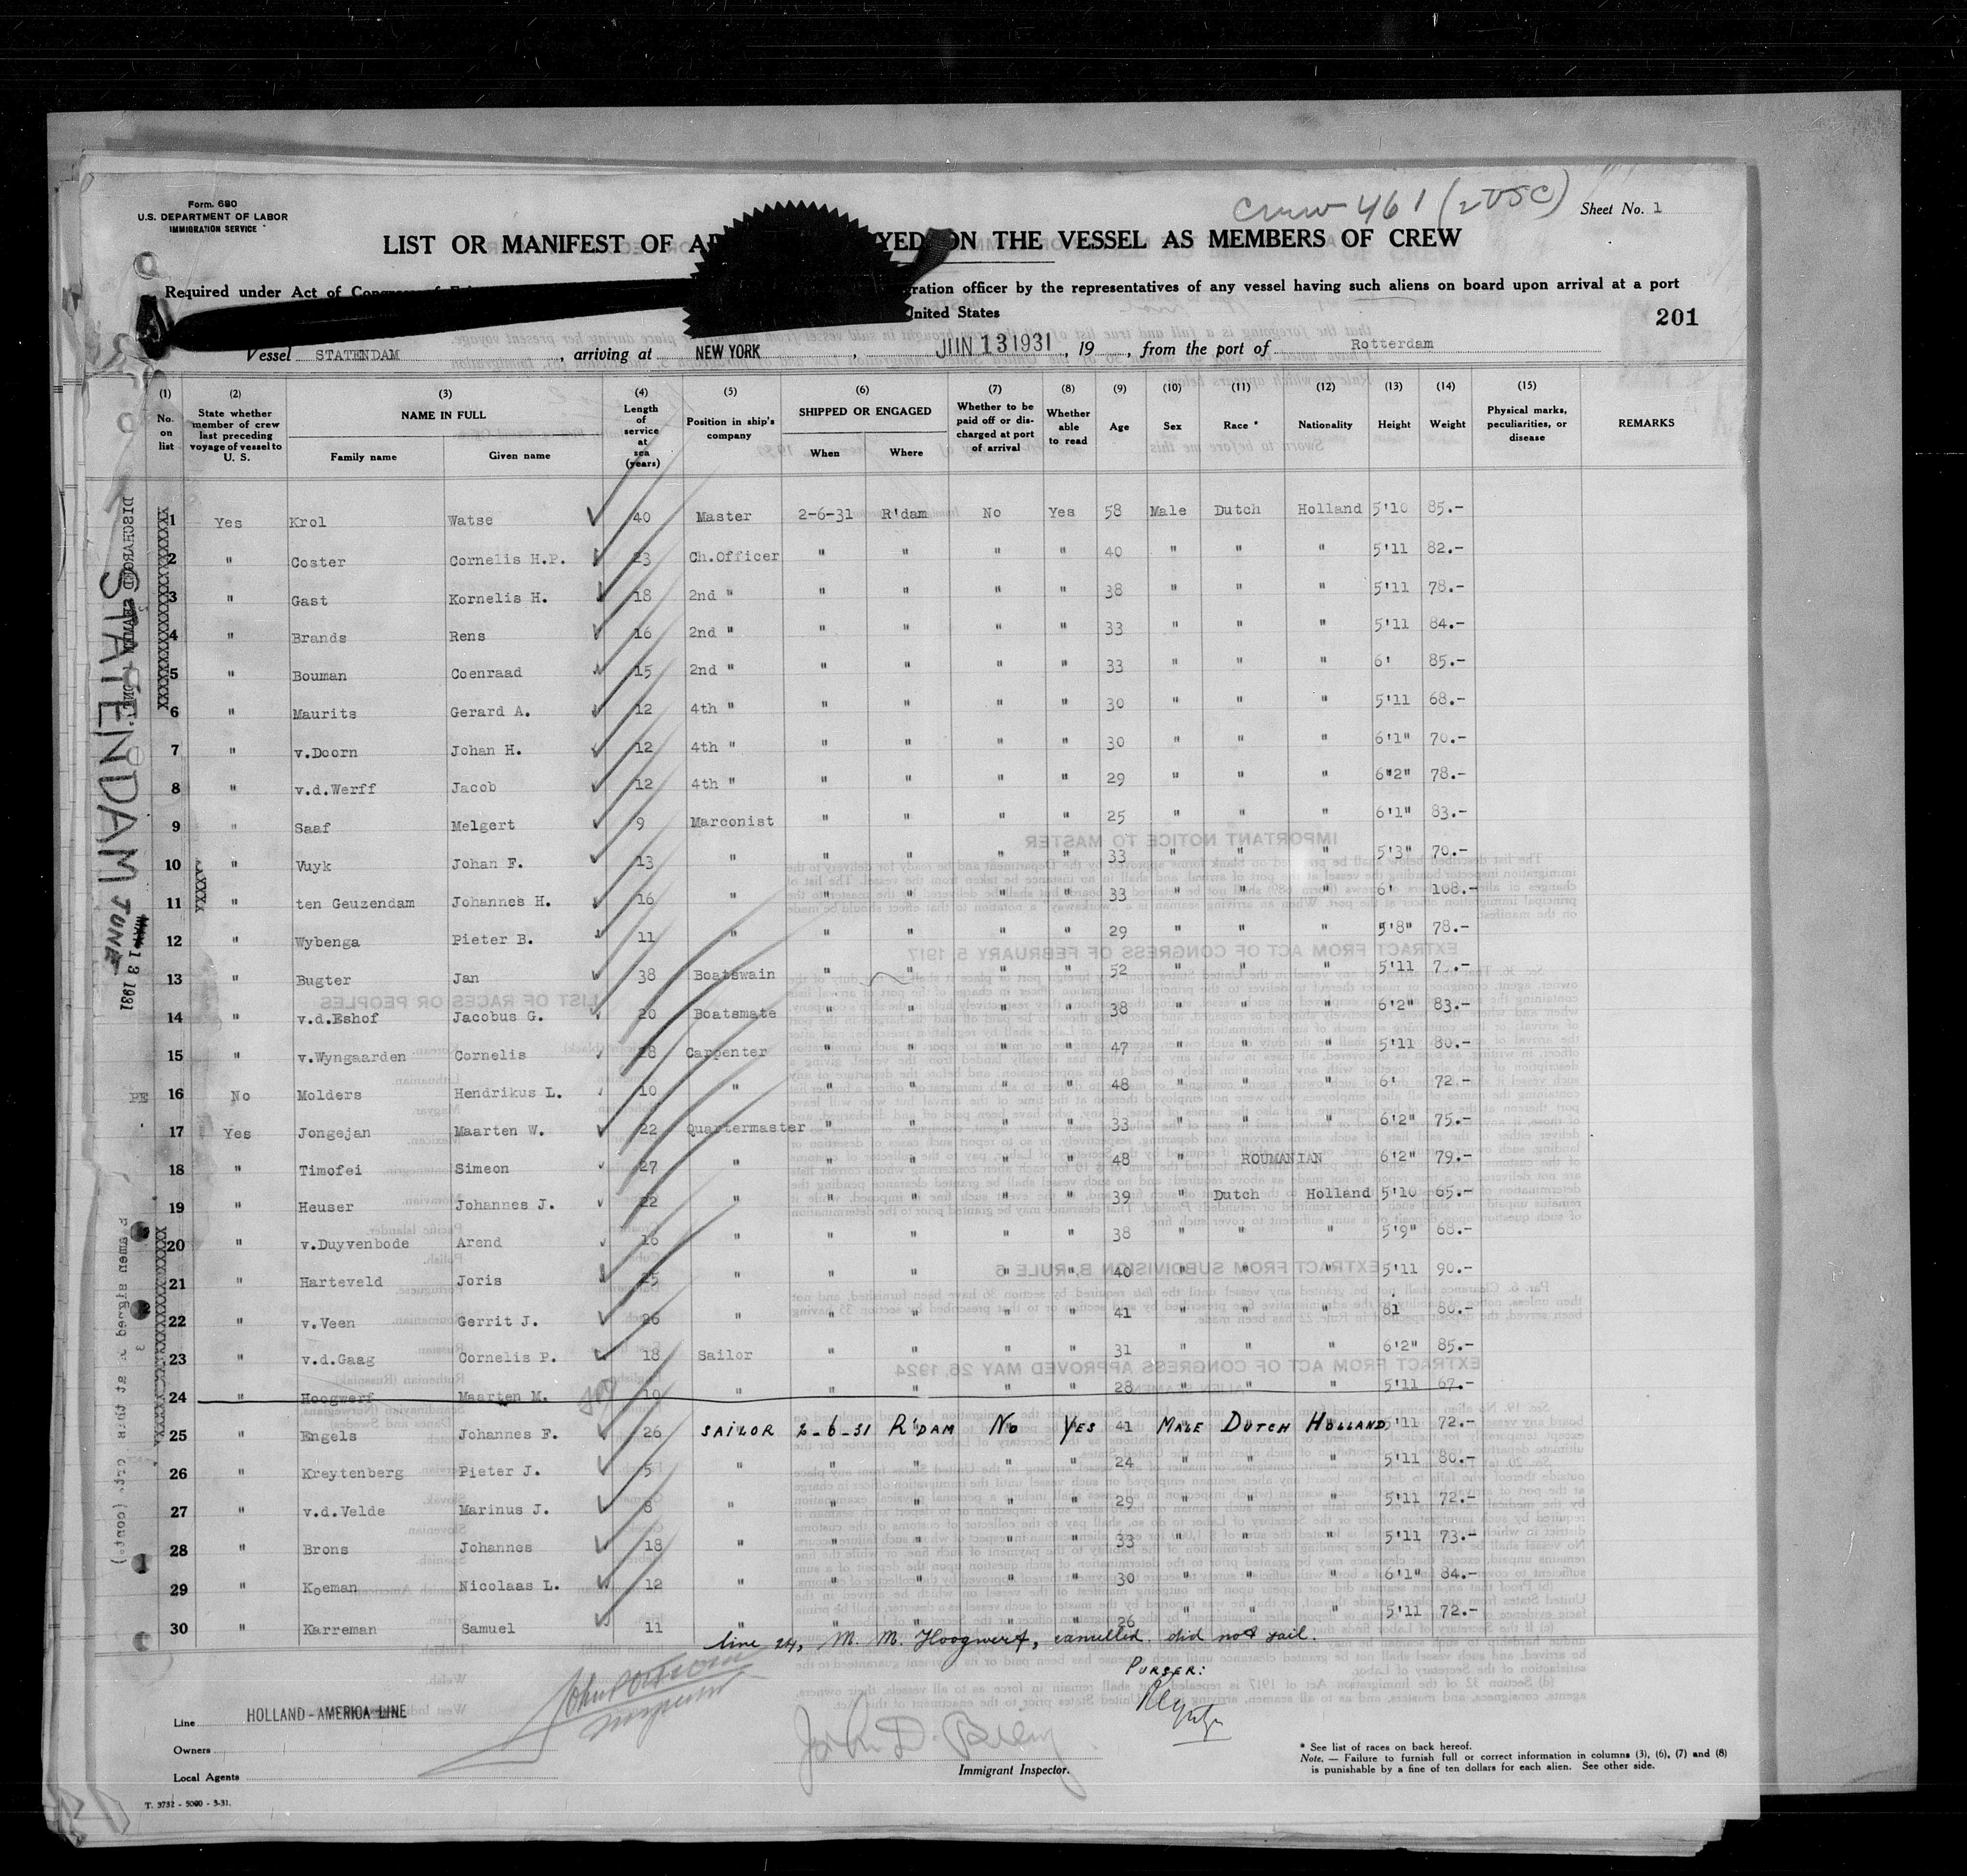 Crew 461 (2 USC)
Form. 680
U.S. DEPARTMENT OF LABOR
IMMIGRATION SERVICE
Sheet No. 1
LIST OR MANIFEST OF YED ON THE VESSEL AS MEMBERS OF CREW
Required under Act of Congress gration officer by the representatives of any vessel having such aliens on board upon arrival at a port
United States
201
Vessel STATENDAM, arriving at NEW YORK, JUN 13 1931, 19, from the port of Rotterdam
(1) (2) (3) (4) (5) (6) (7) (8) (9) (10) (11) (12) (13) (14) (15)
No. on list State whether member of crew last preceding voyage of vessel to U. S. NAME IN FULL Family name Given name Length of service at sea (years) Position in ship's company SHIPPED OR ENGAGED When Where Whether to be paid off or discharged at port of arrival Whether able to read Age Sex Race * Nationality Height Weight Physical marks, peculiarities, or disease REMARKS
1 Yes Krol Watse 40 Master 2-6-31 R'dam No Yes 58 Male Dutch Holland 5'10 85.-
2 " Coster Cornelis H.P. 23 Ch.Officer " " " " 40 " " " 5'11 82.-
3 " Gast Kornelis H. 18 2nd " " " " " 38 " " " 5'11 78.-
4 " Brands Rens 16 2nd " " " " " 33 " " " 5'11 84.-
5 " Bouman Coenraad 15 2nd " " " " " 33 " " " 6' 85.-
6 " Maurits Gerard A. 12 4th " " " " " 30 " " " 5'11 68.-
7 " v.Doorn Johan H. 12 4th " " " " " 30 " " " 6'1" 70.-
8 " v.d.Werff Jacob 12 4th " " " " " 29 " " " 6"2" 78.-
9 " Saaf Melgert 9 Marconist " " " " 25 " " " 6'1" 83.-
10 " Vuyk Johan F. 13 " " " " " 33 " " " 5'3" 70.-
11 " ten Geuzendam Johannes H. 16 " " " " " 33 " " " 6' 108.-
12 " Wybenga Pieter B. 11 " " " " " 29 " " " 5'8" 78.-
13 " Bugter Jan 38 Boatswain " " " " 52 " " " 5'11
14 " v.d.Eshof Jacobus G. 20 Boatsmate " " " " 38 " " " 6'2" 83.-
15 " v.Wyngaarden Cornelis 28 Carpenter " " " " 47 " " " 5'11 80.-
16 No Molders Hendrikus L. 10 " " " " " 48 " " " 6' 72.-
17 Yes Jongejan Maarten W. 22 Quartermaster " " " " 33 " " " 6'2" 75.-
18 " Timofei Simeon 27 " " " " " 48 " ROUMANIAN 6'2" 79.-
19 " Heuser Johannes J. 22 " " " " " 39 " Dutch Holland 5'10 65.-
20 " v.Duyvenbode Arend 16 " " " " " 38 " " " 5'9" 68.-
21 " Harteveld Joris 25 " " " " " 40 " " " 5'11 90.-
22 " v.Veen Gerrit J. 26 " " " " " 41 " " " 81 80.-
23 " v.d.Gaag Cornelis P. 18 Sailor " " " " 31 " " " 6'2" 85.-
24 " Hoogwerf Maarten M. 10 " " " " " 28 " " " 5'11 67.-
25 " Engels Johannes F. 26 SAILOR 2-6-31 R'DAM No YES 41 MALE DUTCH HOLLAND 5'11 72.-
26 " Kreytenberg Pieter J. 5 " " " " " 24 " " " 5'11 80.-
27 " v.d.Velde Marinus J. 8 " " " " " 29 " " " 5'11 72.-
28 " Brons Johannes 18 " " " " " 33 " " " 5'11 73.-
29 " Koeman Nicolaas L. 12 " " " " " 30 " " " 6'1" 84.-
30 " Karreman Samuel 11 " " " " " 26 " " " 5'11 72.-
line 24, M. M. Hoogwerf, cancelled. did not sail.
PURSER:
Line HOLLAND-AMERICA LINE
Owners
Local Agents
Immigrant Inspector.
* See list of races on back hereof.
Note. — Failure to furnish full or correct information in columns (3), (6), (7) and (8)
is punishable by a fine of ten dollars for each alien. See other side.
T. 3732 - 5000 - 3-31.
STATENDAM JUNE 13 1931
PE